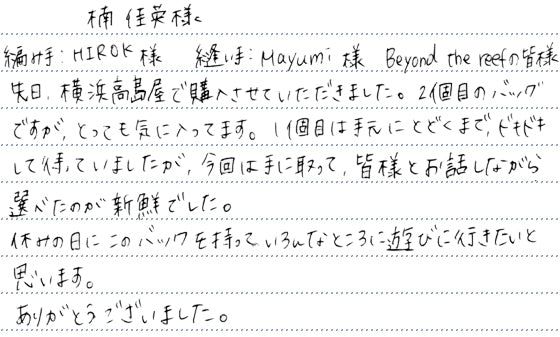 楠 佳英様
編み手：HIROK様 縫い手：Mayumi様 Beyond the reefの皆様
先日、横浜高島屋で購入させていただきました。2個目のバッグ
ですが、とっても気に入ってます。1個目は手元にとどくまで、ドキドキ
して待っていましたが、今回は手に取って、皆様とお話しながら
選べたのが新鮮でした。
休みの日にこのバッグを持っていろんなところに遊びに行きたいと
思います。
ありがとうございました。